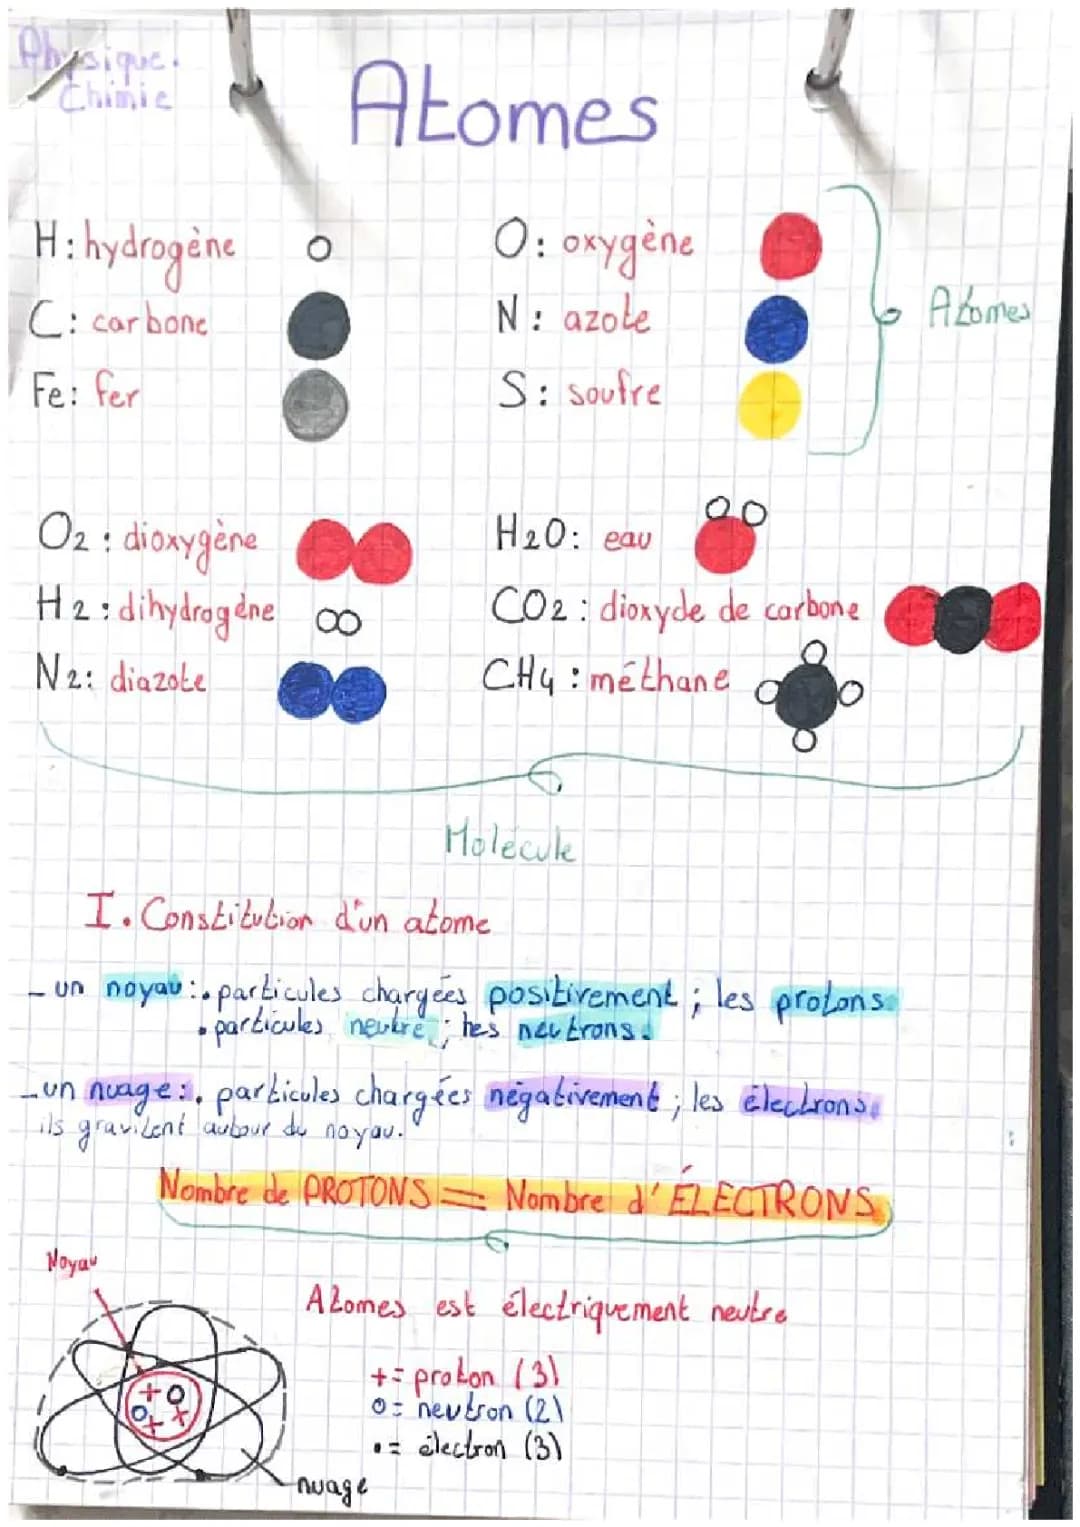 Physique.
Chimie
Atomes
H: hydrogène
O: oxygène
C: carbone
N: azote
Atomes
Fe: fer
S: soufre
O2: dioxygène
H2O: eau
H2: dihydrogène
CO2: dioxyde de carbone
N2: diazote
CH4: méthane
Molécule
I. Constitution d'un atome
- un noyau: . particules chargées positivement ; les protons.
. particules neutre ; les neutrons.
- un nuage: . particules chargées négativement ; les électrons.
ils gravitent autour du noyau.
Nombre de PROTONS = Nombre d'ÉLECTRONS
Noyau
Atomes est électriquement neutre
+ = proton (3)
o = neutron (2)
• = électron (3)
nuage